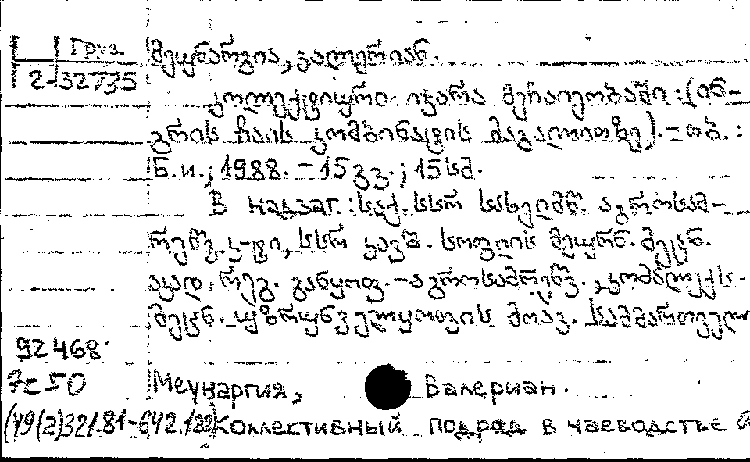 Груз
2-32735
მეუნარგია, ვალერიან.
კოლექტიური იჯარა მეჩაიეობაში : (ინ-
გრის ჩაის კომბინატის მაგალითზე). – თბ. :
Б.и.; 1988. – 15 გვ.; 15 სმ.
В надзаг. : საქ. სსრ სახელმწ. აგროსამ-
რეწვ. კ-ტი, სსრ კავშ. სოფლის მეურნ. მეცნ.
აკად. რეგ. განყოფ. – აგროსამრეწვ.
მეცნ. უზრუნველყოფის მთავ. სამმართველო
92468
7с50
Меунаргия, Валериан.
Коллективный подряд в чаеводстве